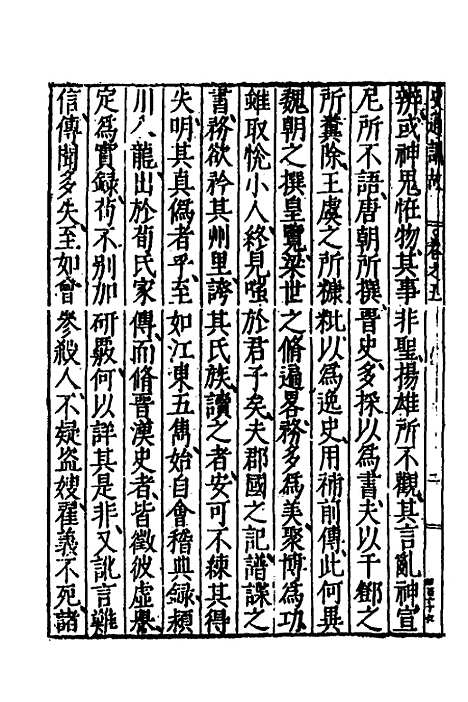 史通訓故 卷之五 二
辨或神鬼恠物其事非聖揚雄所不觀其言亂神宣
尼所不語唐朝所撰晉史多採以爲書夫以千鄧之
所糞除王虞之所糠粃以爲逸史用補前傳此何異
魏朝之撰皇覽梁世之脩遍畧務多爲美聚博爲功
雖取悅小人終見嗤於君子矣夫郡國之記譜諜之
書務欲矜其州里誇其氏族讀之者安可不練其得
失明其真僞者乎至如江東五儁始自會稽典録潁
川八龍出於荀氏家傳而脩晉漢史者皆徵彼虛譽
定爲實録茍不別加研覈何以詳其是非又訛言難
信傳聞多失至如曾參殺人不疑盗嫂翟義不死諸